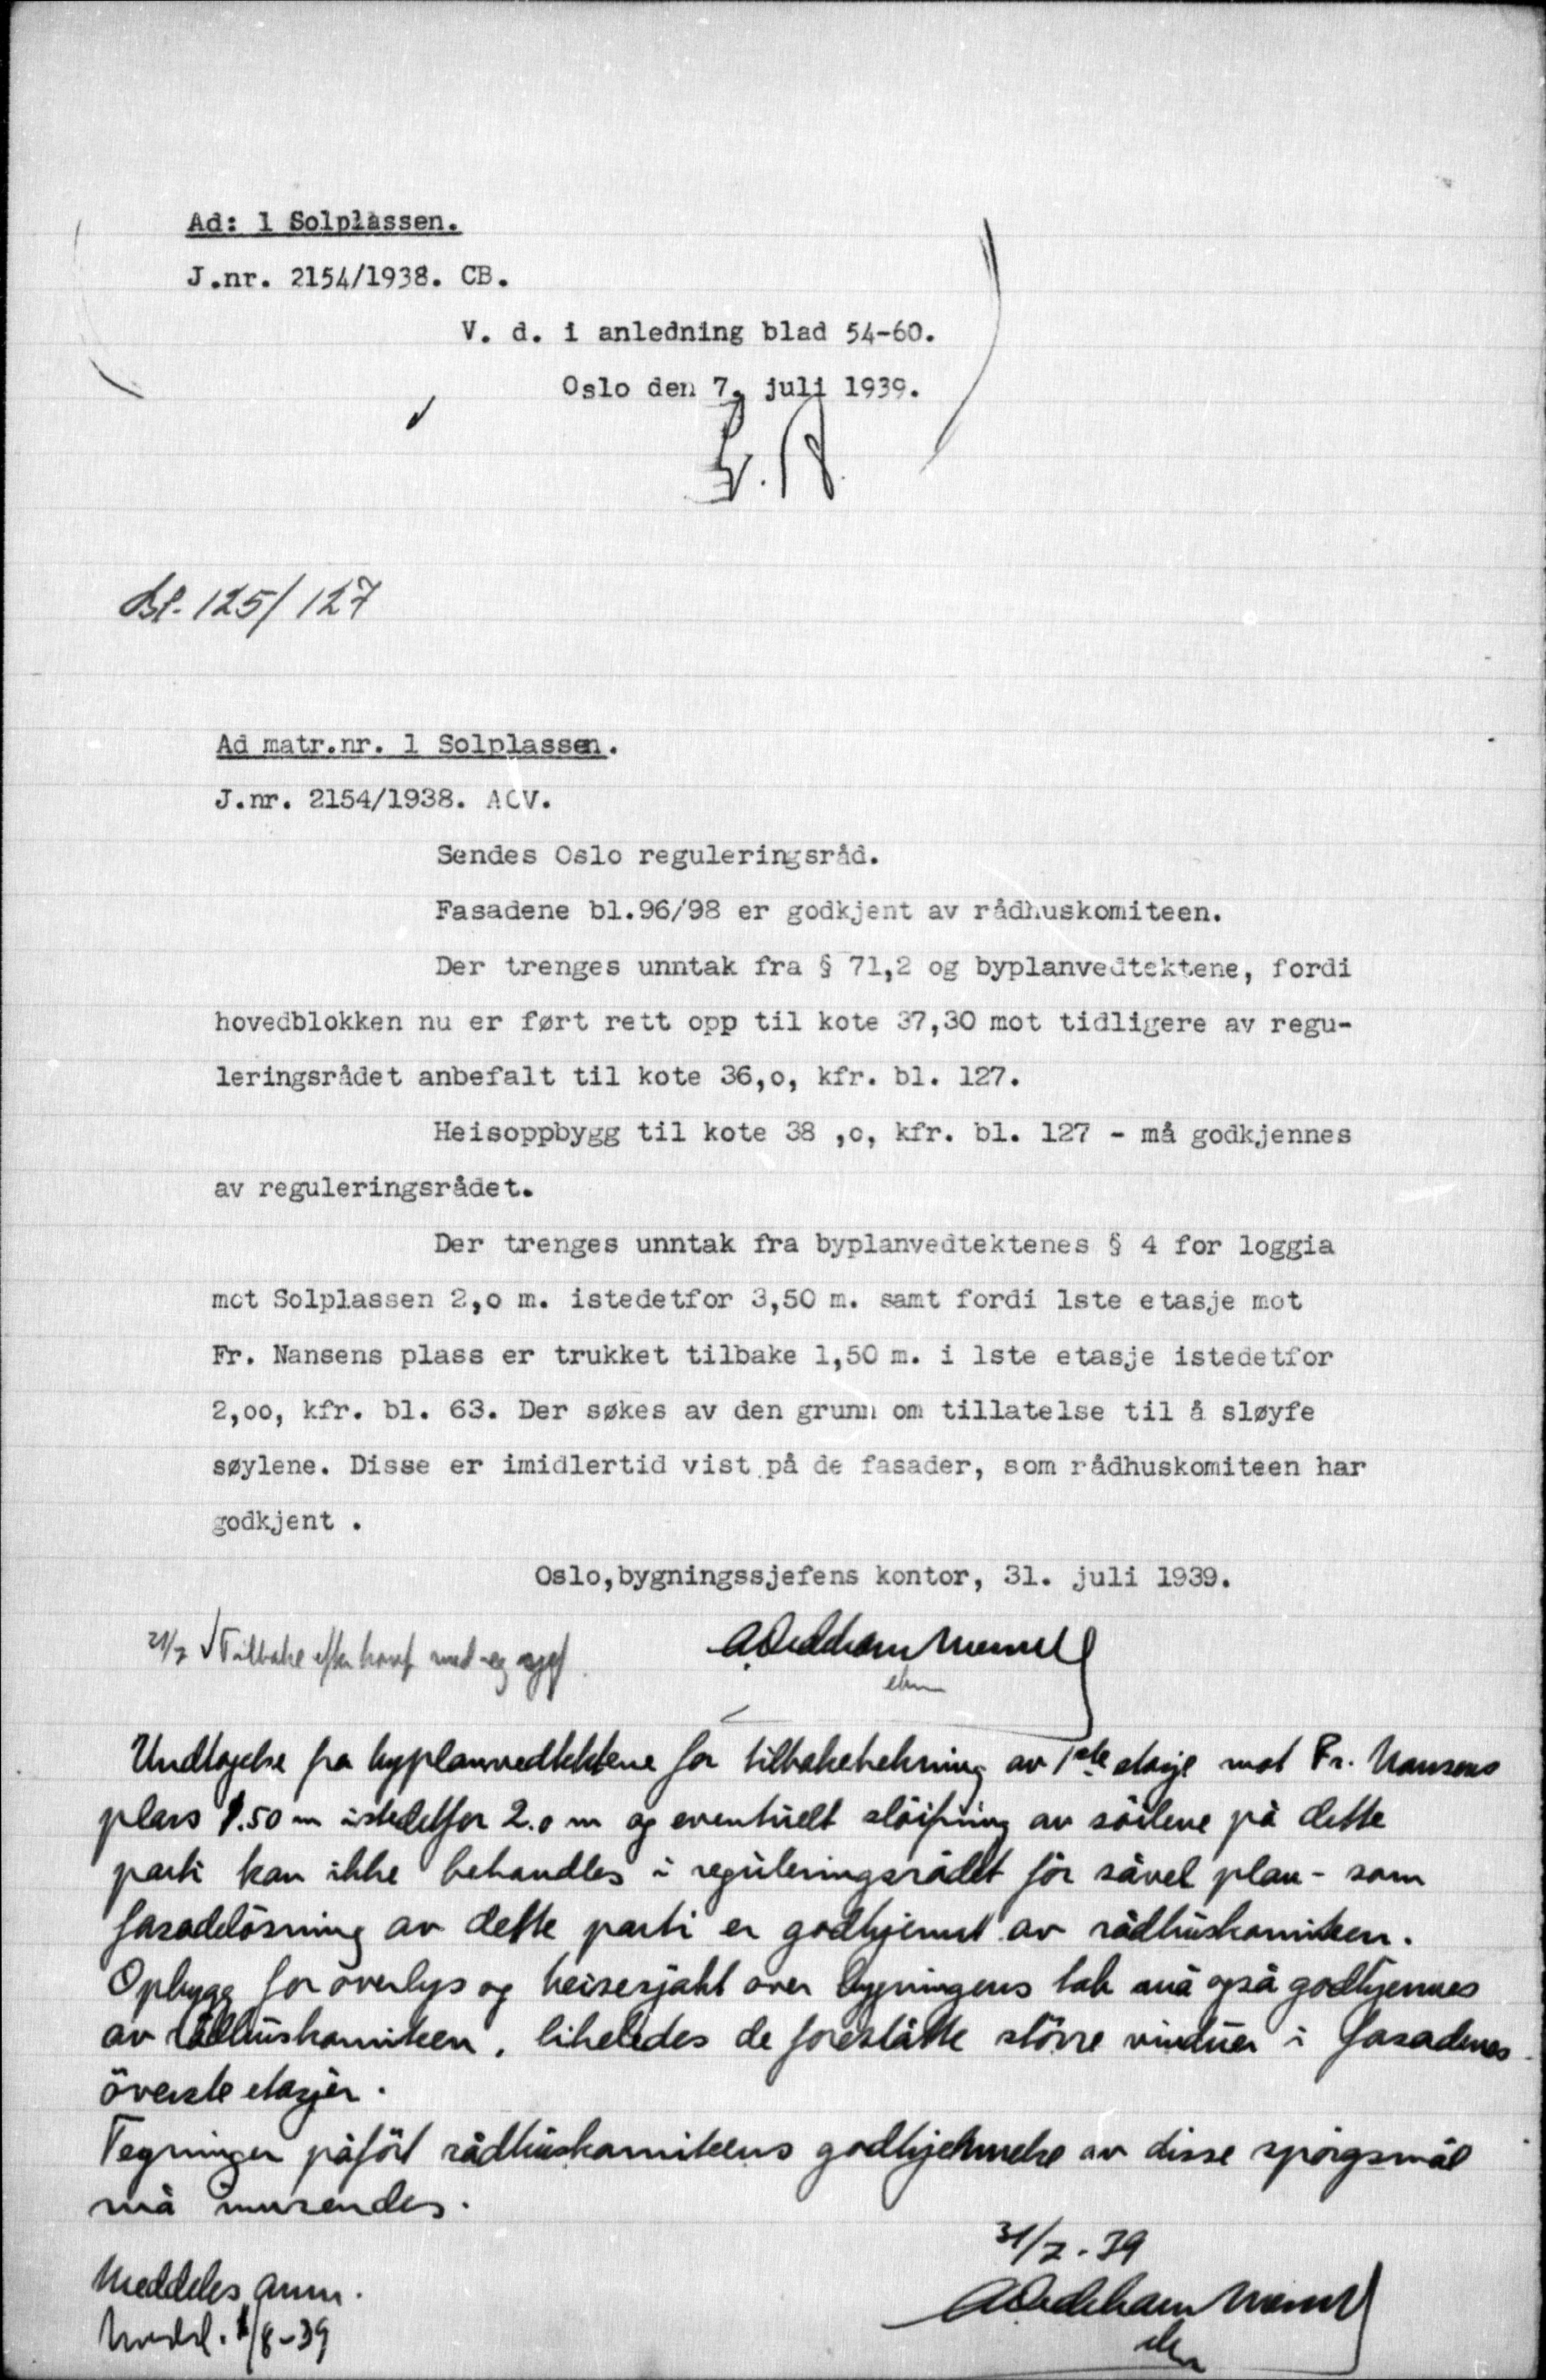 Ad: 1 Solplassen.
J.nr. 2154/1938. CB.
V. d. i anledning blad 54-60.
Oslo den 7. juli 1939.
Bl. 125/127
Ad matr.nr. 1 Solplassen.
J.nr. 2154/1938. ACV.
Sendes Oslo reguleringsråd.
Fasadene bl.96/98 er godkjent av rådhuskomiteen.
Der trenges unntak fra § 71,2 og byplanvedtektene, fordi
hovedblokken nu er ført rett opp til kote 37,30 mot tidligere av regu-
leringsrådet anbefalt til kote 36,o, kfr. bl. 127.
Heisoppbygg til kote 38 ,o, kfr. bl. 127 - må godkjennes
av reguleringsrådet.
Der trenges unntak fra byplanvedtektenes § 4 for loggia
mot Solplassen 2,o m. istedetfor 3,50 m. samt fordi 1ste etasje mot
Fr. Nansens plass er trukket tilbake 1,50 m. i 1ste etasje istedetfor
2,oo, kfr. bl. 63. Der søkes av den grunn om tillatelse til å sløyfe
søylene. Disse er imidlertid vist på de fasader, som rådhuskomiteen har
godkjent .
Oslo,bygningssjefens kontor, 31. juli 1939.
Tilbake efter konf med
Undtagelse fra byplanvedtektene for tilbaketrekning av 1ste etasje mot Fr. Nansens
plass 1.50 m istedetfor 2.0 m og eventuelt slöifning av söilene på dette
parti kan ikke behandles i reguleringsrådet för såvel plan- som
fasadelösning av dette parti er godkjennt av rådhuskomiteen.
Opbygg for overlys og heisesjakt over bygningens tak må også godkjennes
av rådhuskomiteen, likeledes de foreslåtte större vinduer i fasadenes
överste etasjer.
Tegninger påfört rådhuskomiteens godkjennelse av disse spörgsmål
må innsendes.
31/7-39
Meddeles anm.
Meddl. 1/8-39